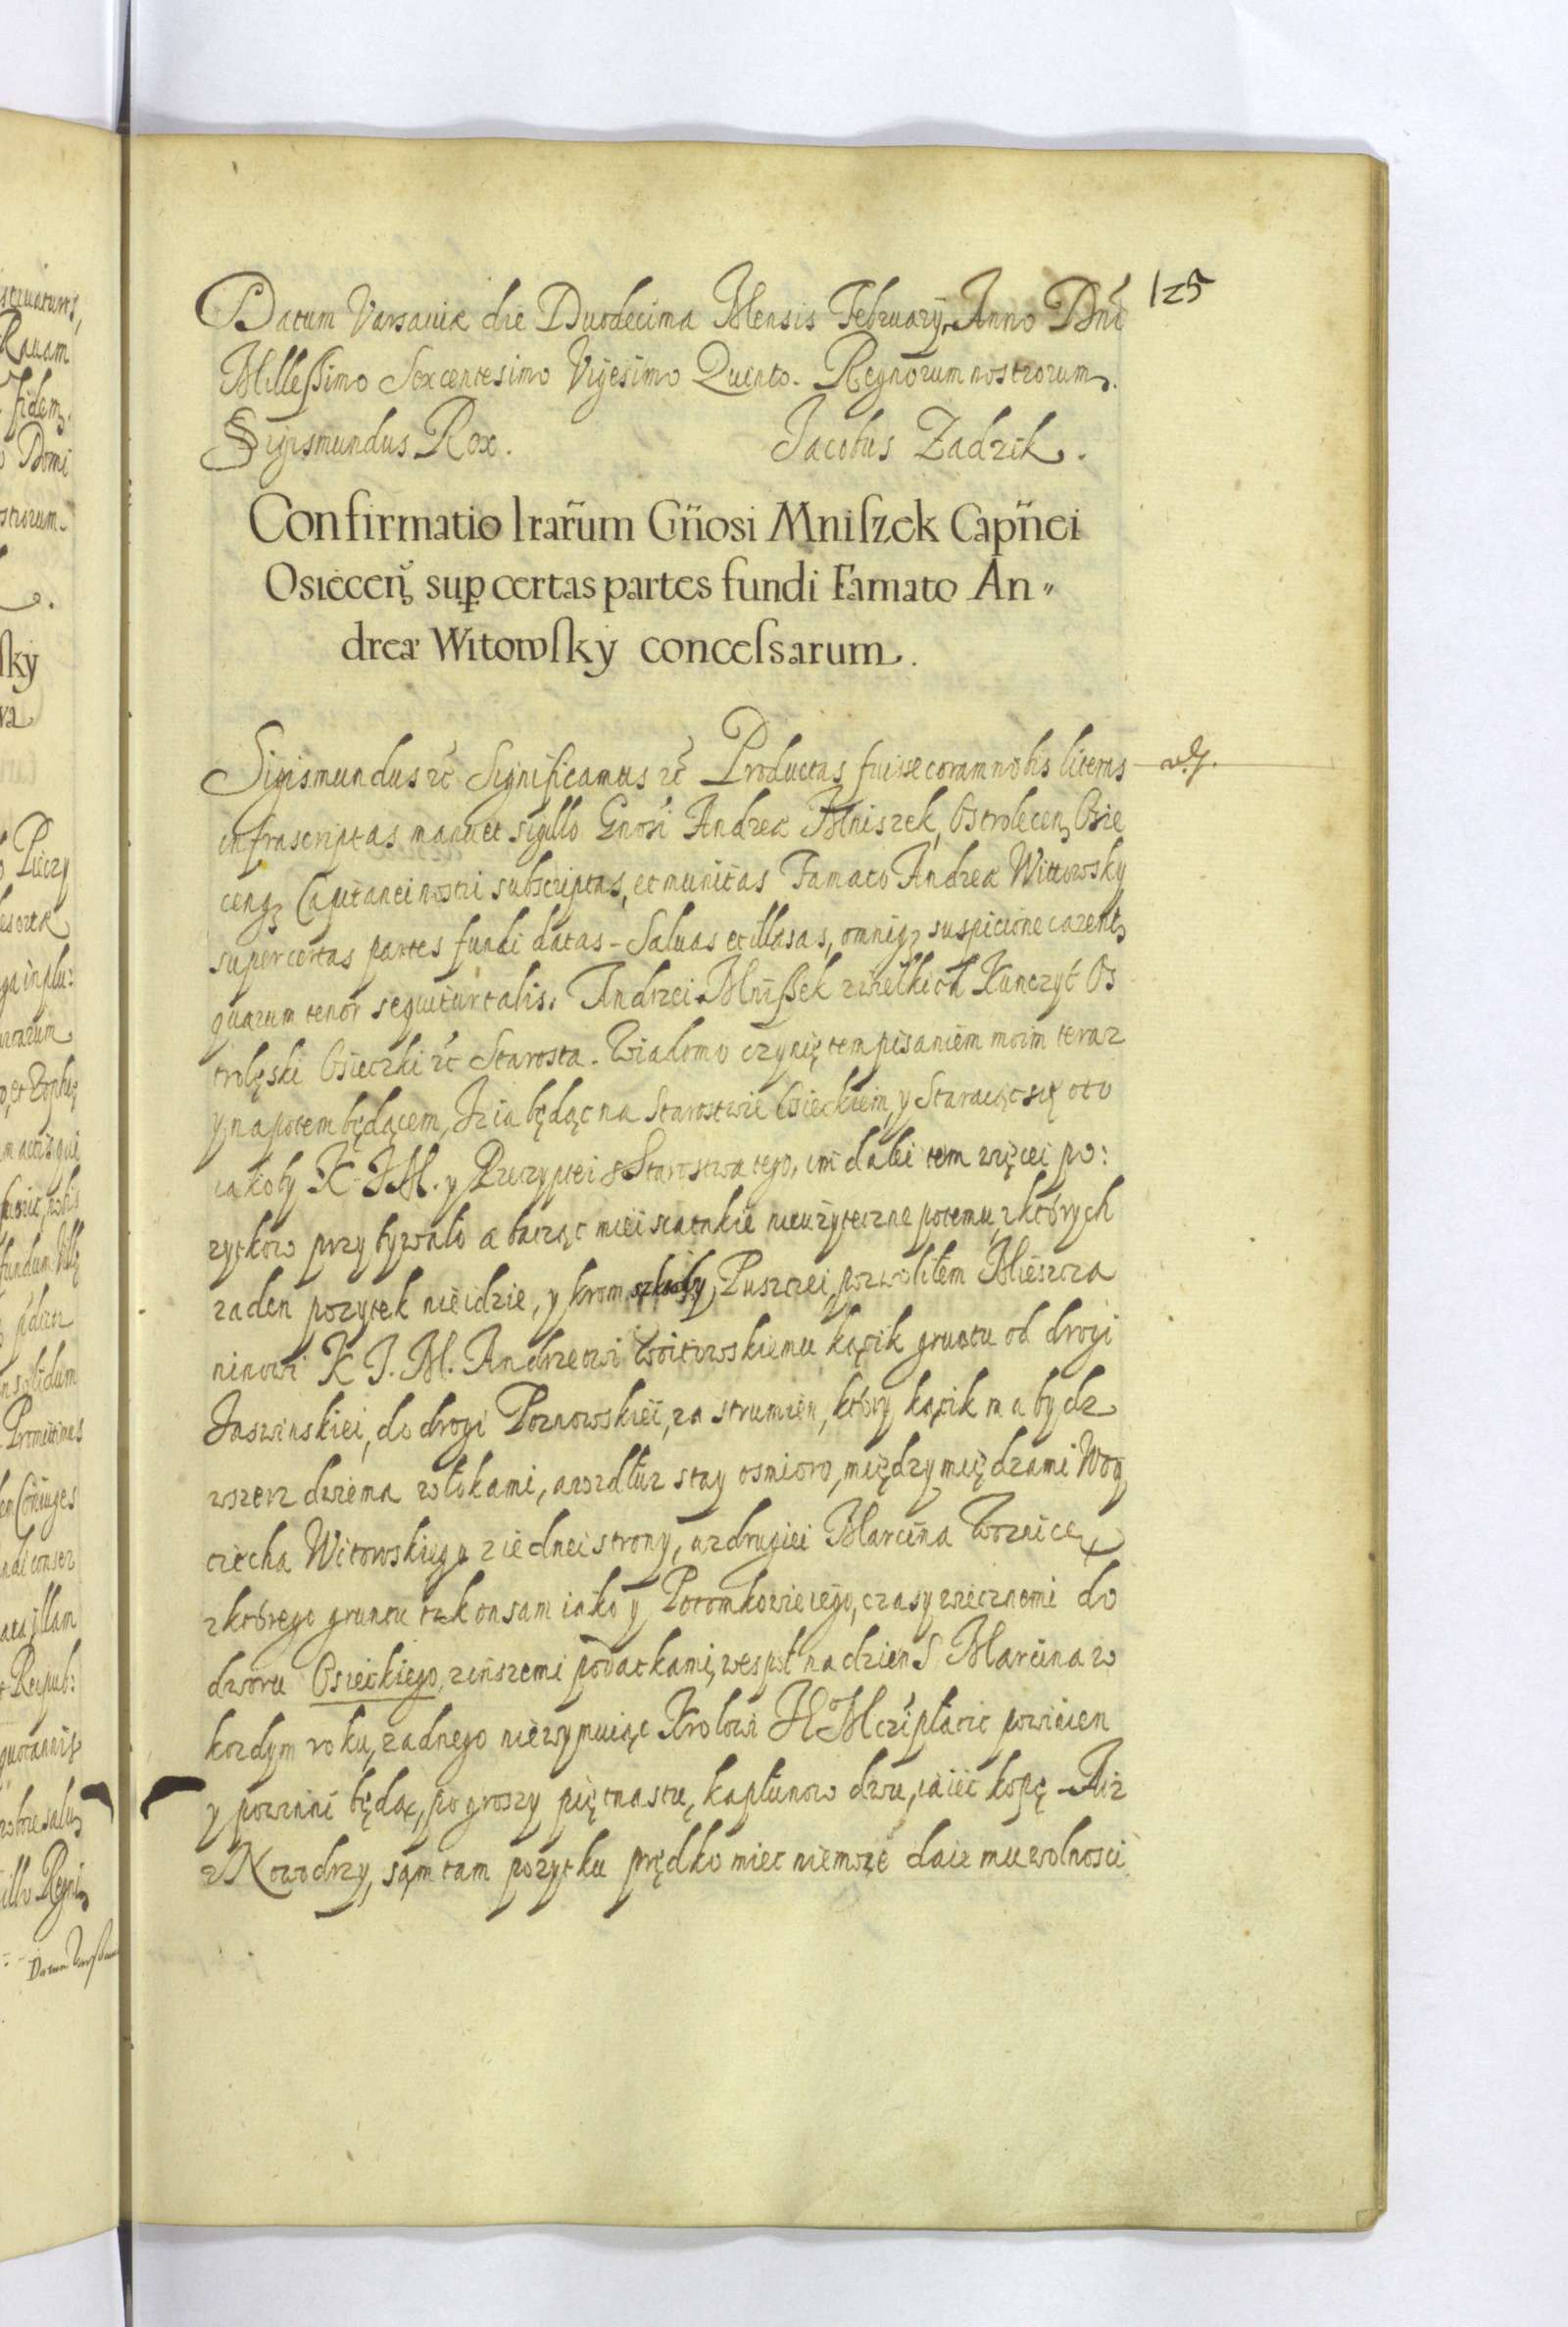 125
Datum Varsaviæ die Duodecima Mensis February, Anno Dñi
Millessimo Sexcentesimo Vigesimo Quinto. Regnorum nostrorum.
Sigismundus Rex. Jacobus Zadzik.
Confirmatio lrarum Gñosi Mniszek Capñei
Osiecen sup certas partes fundi Famato An"
dreæ Witowsky concessarum.
Sigismundus rc Significamus rc Productas fuisse coram nobis literas
infrascriptas manu et sigillo Gnosi Andreæ Mniszek, Ostrolecen, Osie
cenq Capitanei nostri subscriptas, et munitas Famato Andreæ Wittowsky
super certas partes fundi datas - Salvas et illæsas, omniq suspicione carentes
quarum tenor sequitur talis. Andrzei Mnissek zwielkich Kunczyc Os
trolęski Osieczki rc Starosta. Wiadomo czynię tem pisaniem moim teraz
y napotem będącem, Iz ia będąc na Starostwie Osieckiem, y Staraiąc się oto
iakoby K. J M. y Rzeczyptei z Starostwa tego, im dalei tem więcei po:
zytkow przybywało a bacząc mieisca takie nieużyteczne potemu, zktórych
zaden pozytek nie idzie, y krom szkody Puszczei, pozwolilem Miescza
ninowi K J. M. Andrzeowi Woitowskiemu kącik gruntu od drogi
Jaswinskiei, do drogi Poznowskiei, za strumien, który kącik ma bydz
wszerz dwiema włokami, a wzdłuz stay osmioro, między miedzami Woy
ciecha Witowskiego ziednei strony, a zdrugiei Marcina Woznice
zktórego gruntu tak on sam iako y Potomkowie iego, czasy wiecznemi do
dworu Osieckiego, zinszemi podatkami, wespół na dzien S Marcina w
kozdym roku, zadnego niewymuiąc Krolowi JE Mczi płacic powinien
y powinni będą, po groszy piętnastu, kapłunow dwu, iaiec kopę - A iz
z Nowodrzy, sam tam pozytku prędko miec niemoze daię mu wolnosci